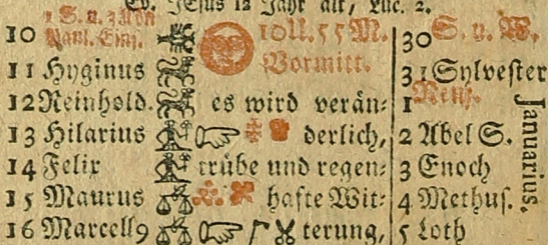 Ev. JEsus 12 Jahr alt, Luc. 2.
10 1 S. n. 3 Kön 10 U. 55 M. 30 S. n. W.
Paul. Eins.
11 Hyginus Vormitt. 31 Sylvester
12 Reinhold. es wird verän- 1 Neuj.
13 Hilarius derlich, 2 Abel S.
14 Felix trübe und regen- 3 Enoch
15 Maurus hafte Wit- 4 Methus.
16 Marcell9 terung, 5 Loth
Januarius.